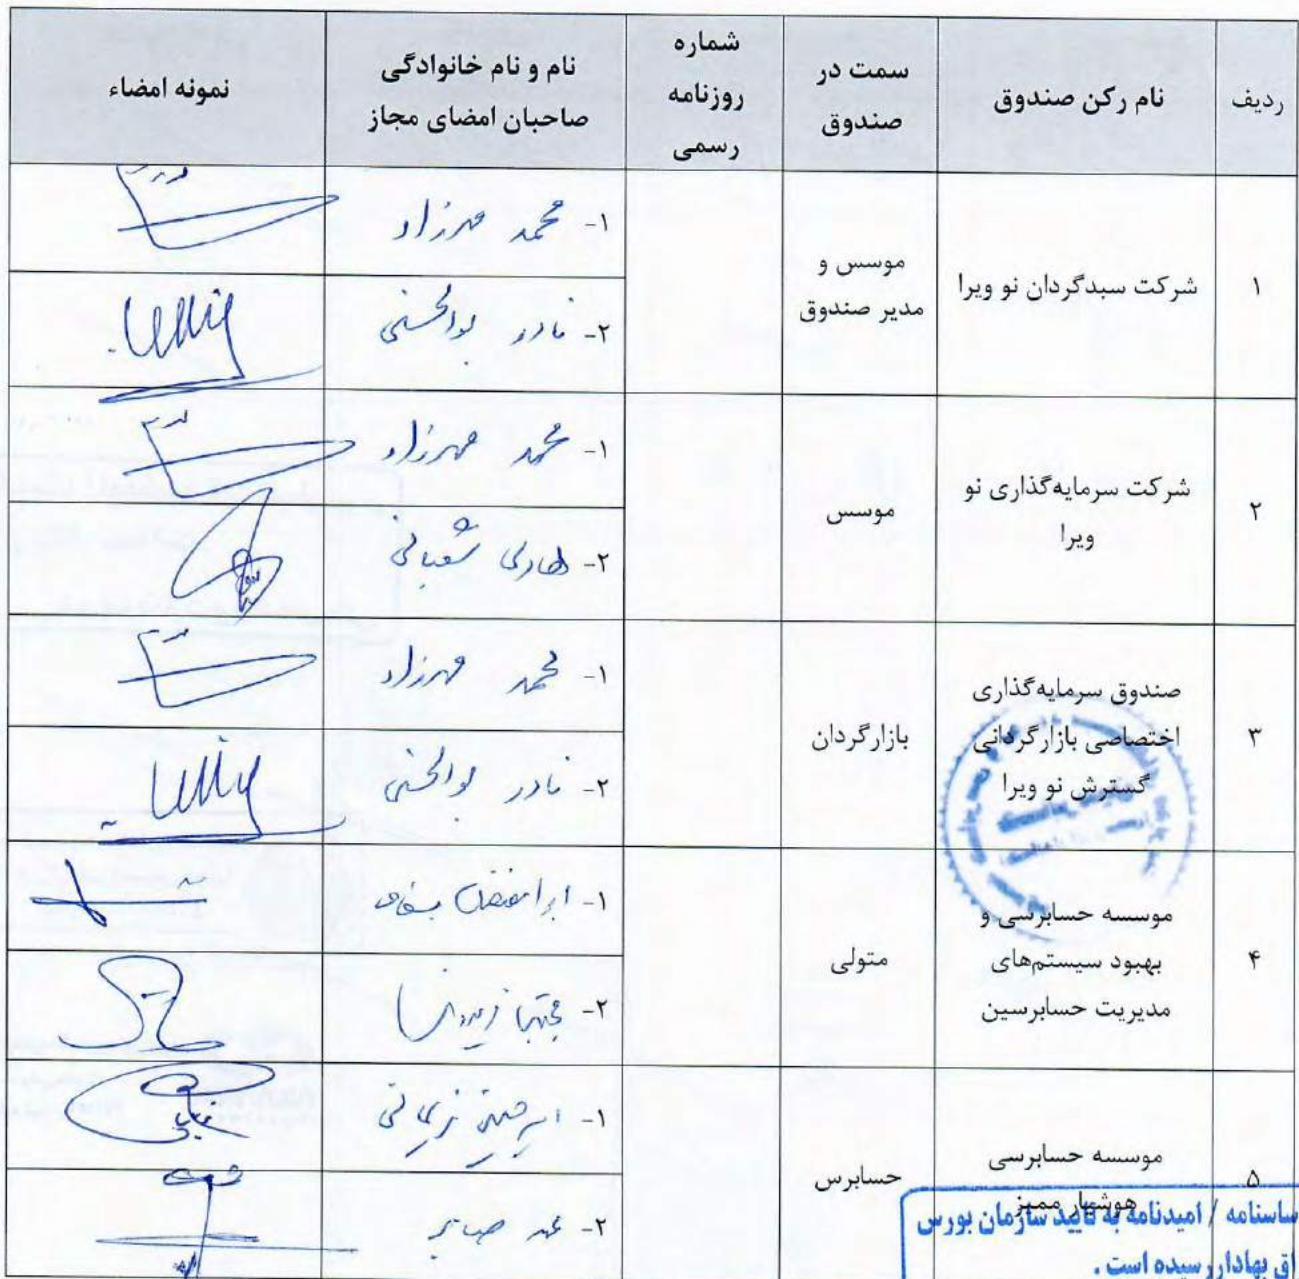 ردیف
نام رکن صندوق
سمت در
صندوق
شماره
روزنامه
رسمی
نام و نام خانوادگی
صاحبان امضای مجاز
نمونه امضاء
۱
شرکت سبدگردان نو ویرا
موسس و
مدیر صندوق
۱- محمد مهرزاد
۲- نادر بوالحسنی
۲
شرکت سرمایه‌گذاری نو
ویرا
موسس
۱- محمد مهرزاد
۲- هادی شعبانی
۳
صندوق سرمایه‌گذاری
اختصاصی بازارگردانی
گسترش نو ویرا
بازارگردان
۱- محمد مهرزاد
۲- نادر بوالحسنی
۴
موسسه حسابرسی و
بهبود سیستم‌های
مدیریت حسابرسین
متولی
۱- ابوالفضل
۲- مجتبی
۵
موسسه حسابرسی
هوشیار ممیز
حسابرس
۱- امیرحسین نریمانی
۲-
ساسنامه / امیدنامه به تایید سازمان بورس
اق بهادار رسیده است .